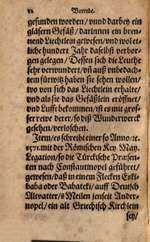 Vorrede.
gefunden worden / vnnd darbey ein
gläsern Gefäß / darinnen ein bren-
nend Liechtlein gewesen / vnd wol et-
liche hundert Jahr daselbst verbor-
gen gelegen / Dessen sich die Leuthe
sehr verwundert / vnd auß vnbedach-
tem fürwitz haben sie sehen wöllen /
wo von sich das Liechtlein erhalte /
vnd als sie das Gefäßlein eröffnet /
vnd Lufft bekommen / ist es mit gros-
ser rewe derer / so diß Wunderwerck
gesehen / verloschen.
Item / es schreibet einer so Anno
mit der Römischen Key. May.
Legation / so die Türckische Præsen-
ten nach Constantinopel geführet /
gewesen / daß in einem Flecken
baba oder Babateki / auff Deutsch
Altvatter / Meilen jenseit Ander-
nopel / ein alt Griechisch Kirchlein
sey /